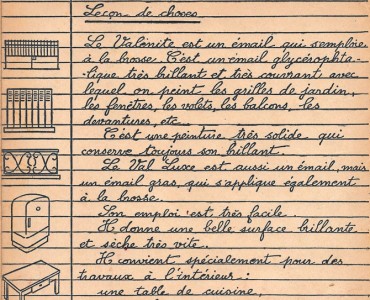 Leçon de choses
Le Valénite est un émail qui s'emploie
à la brosse. C'est un émail glycérophta-
lique très brillant et très couvrant avec
lequel on peint les grilles de jardin,
les fenêtres, les volets, les balcons, les
devantures, etc...
C'est une peinture très solide qui
conserve toujours son brillant.
Le Val'Luxe est aussi un émail, mais
un émail gras, qui s'applique également
à la brosse.
Son emploi est très facile.
Il donne une belle surface brillante
et sèche très vite.
Il convient spécialement pour des
travaux à l'intérieur :
une table de cuisine,